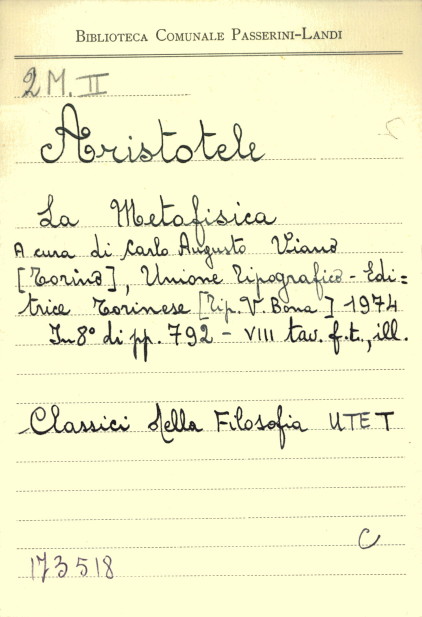 BIBLIOTECA COMUNALE PASSERINI-LANDI
2M. II
Aristotele
La Metafisica
A cura di Carlo Augusto Viano
[Torino], Unione Tipografico-Edi=
trice Torinese [Tip. V. Bona] 1974
In 8° di pp. 792 - VIII tav. f.t., ill.
Classici della Filosofia UTET
C
173518